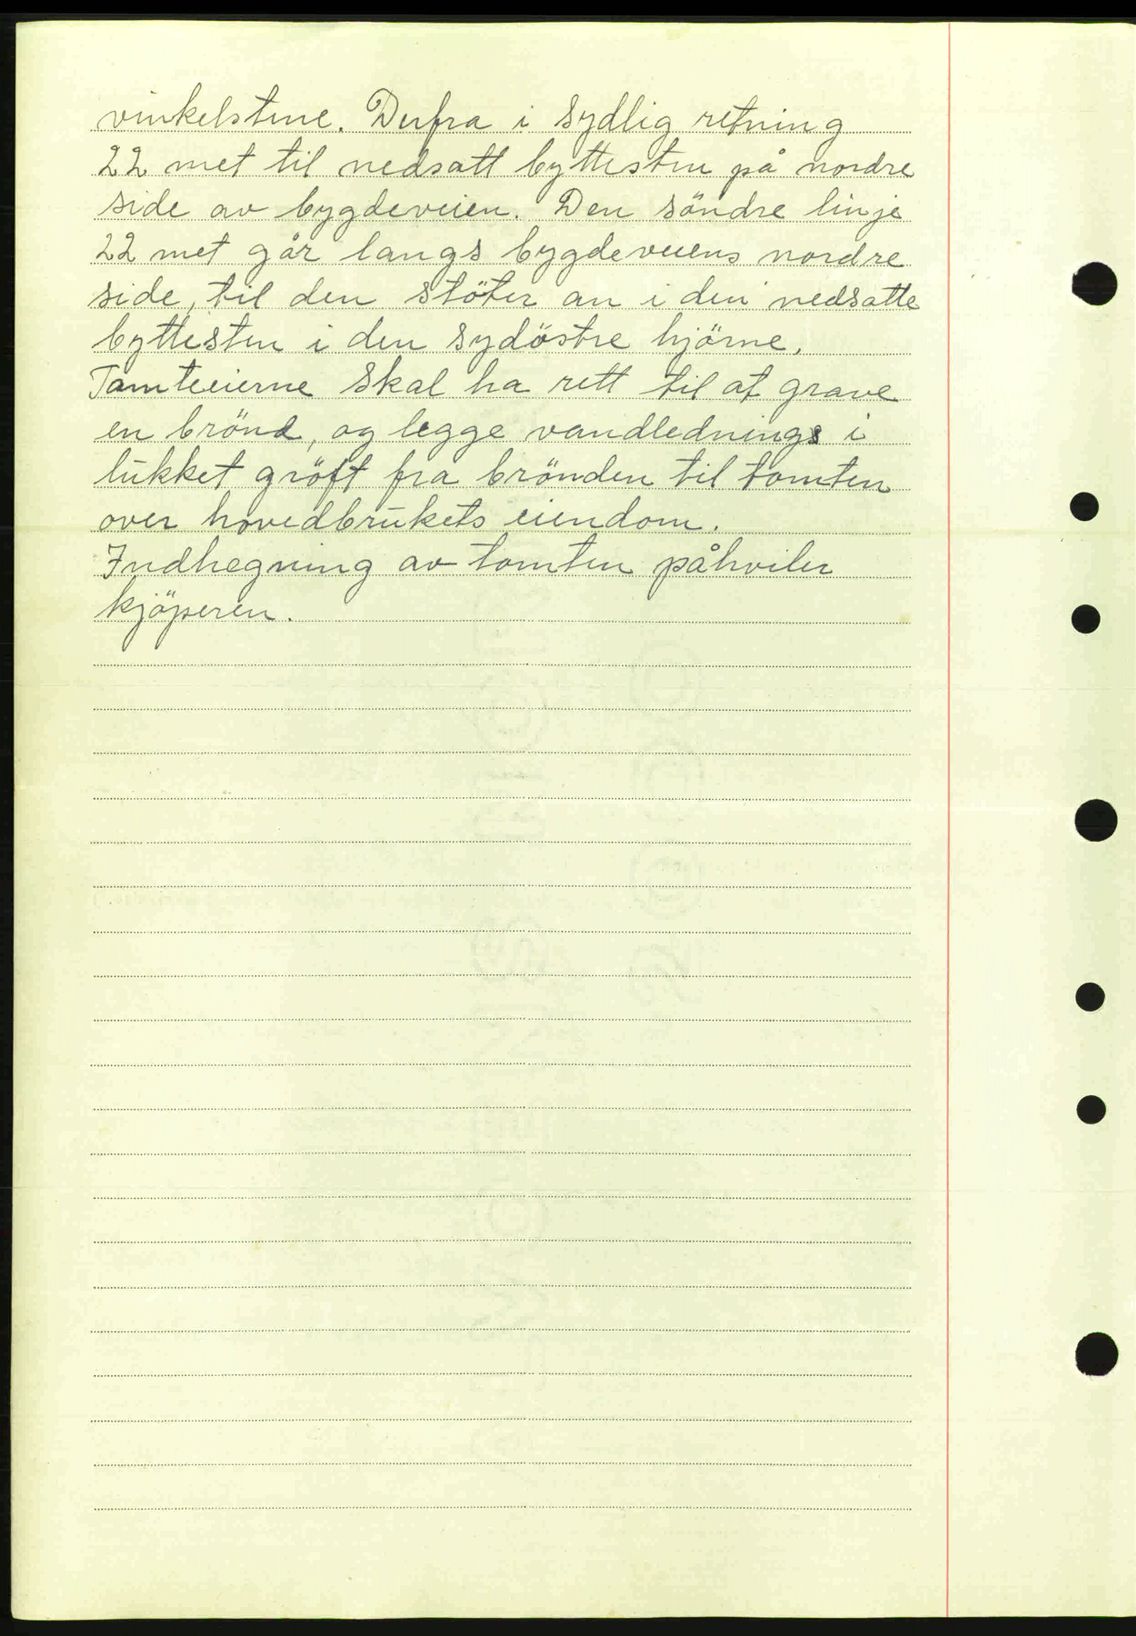 vinkelstene. Derfra i sydlig retning
22 met til nedsatt byttesten på nordre
side av bygdeveien. Den söndre linje
22 met går langs bygdeveiens nordre
side, til den stöter an i den nedsatte
byttesten i den sydöstre hjörne.
Tomteeierne skal ha rett til at grave
en brönd, og legge vandlednings i
lukket gröft fra brönden til tomten
over hovedbrukets eiendom.
Indhegning av tomten påhviler
kjöperen.